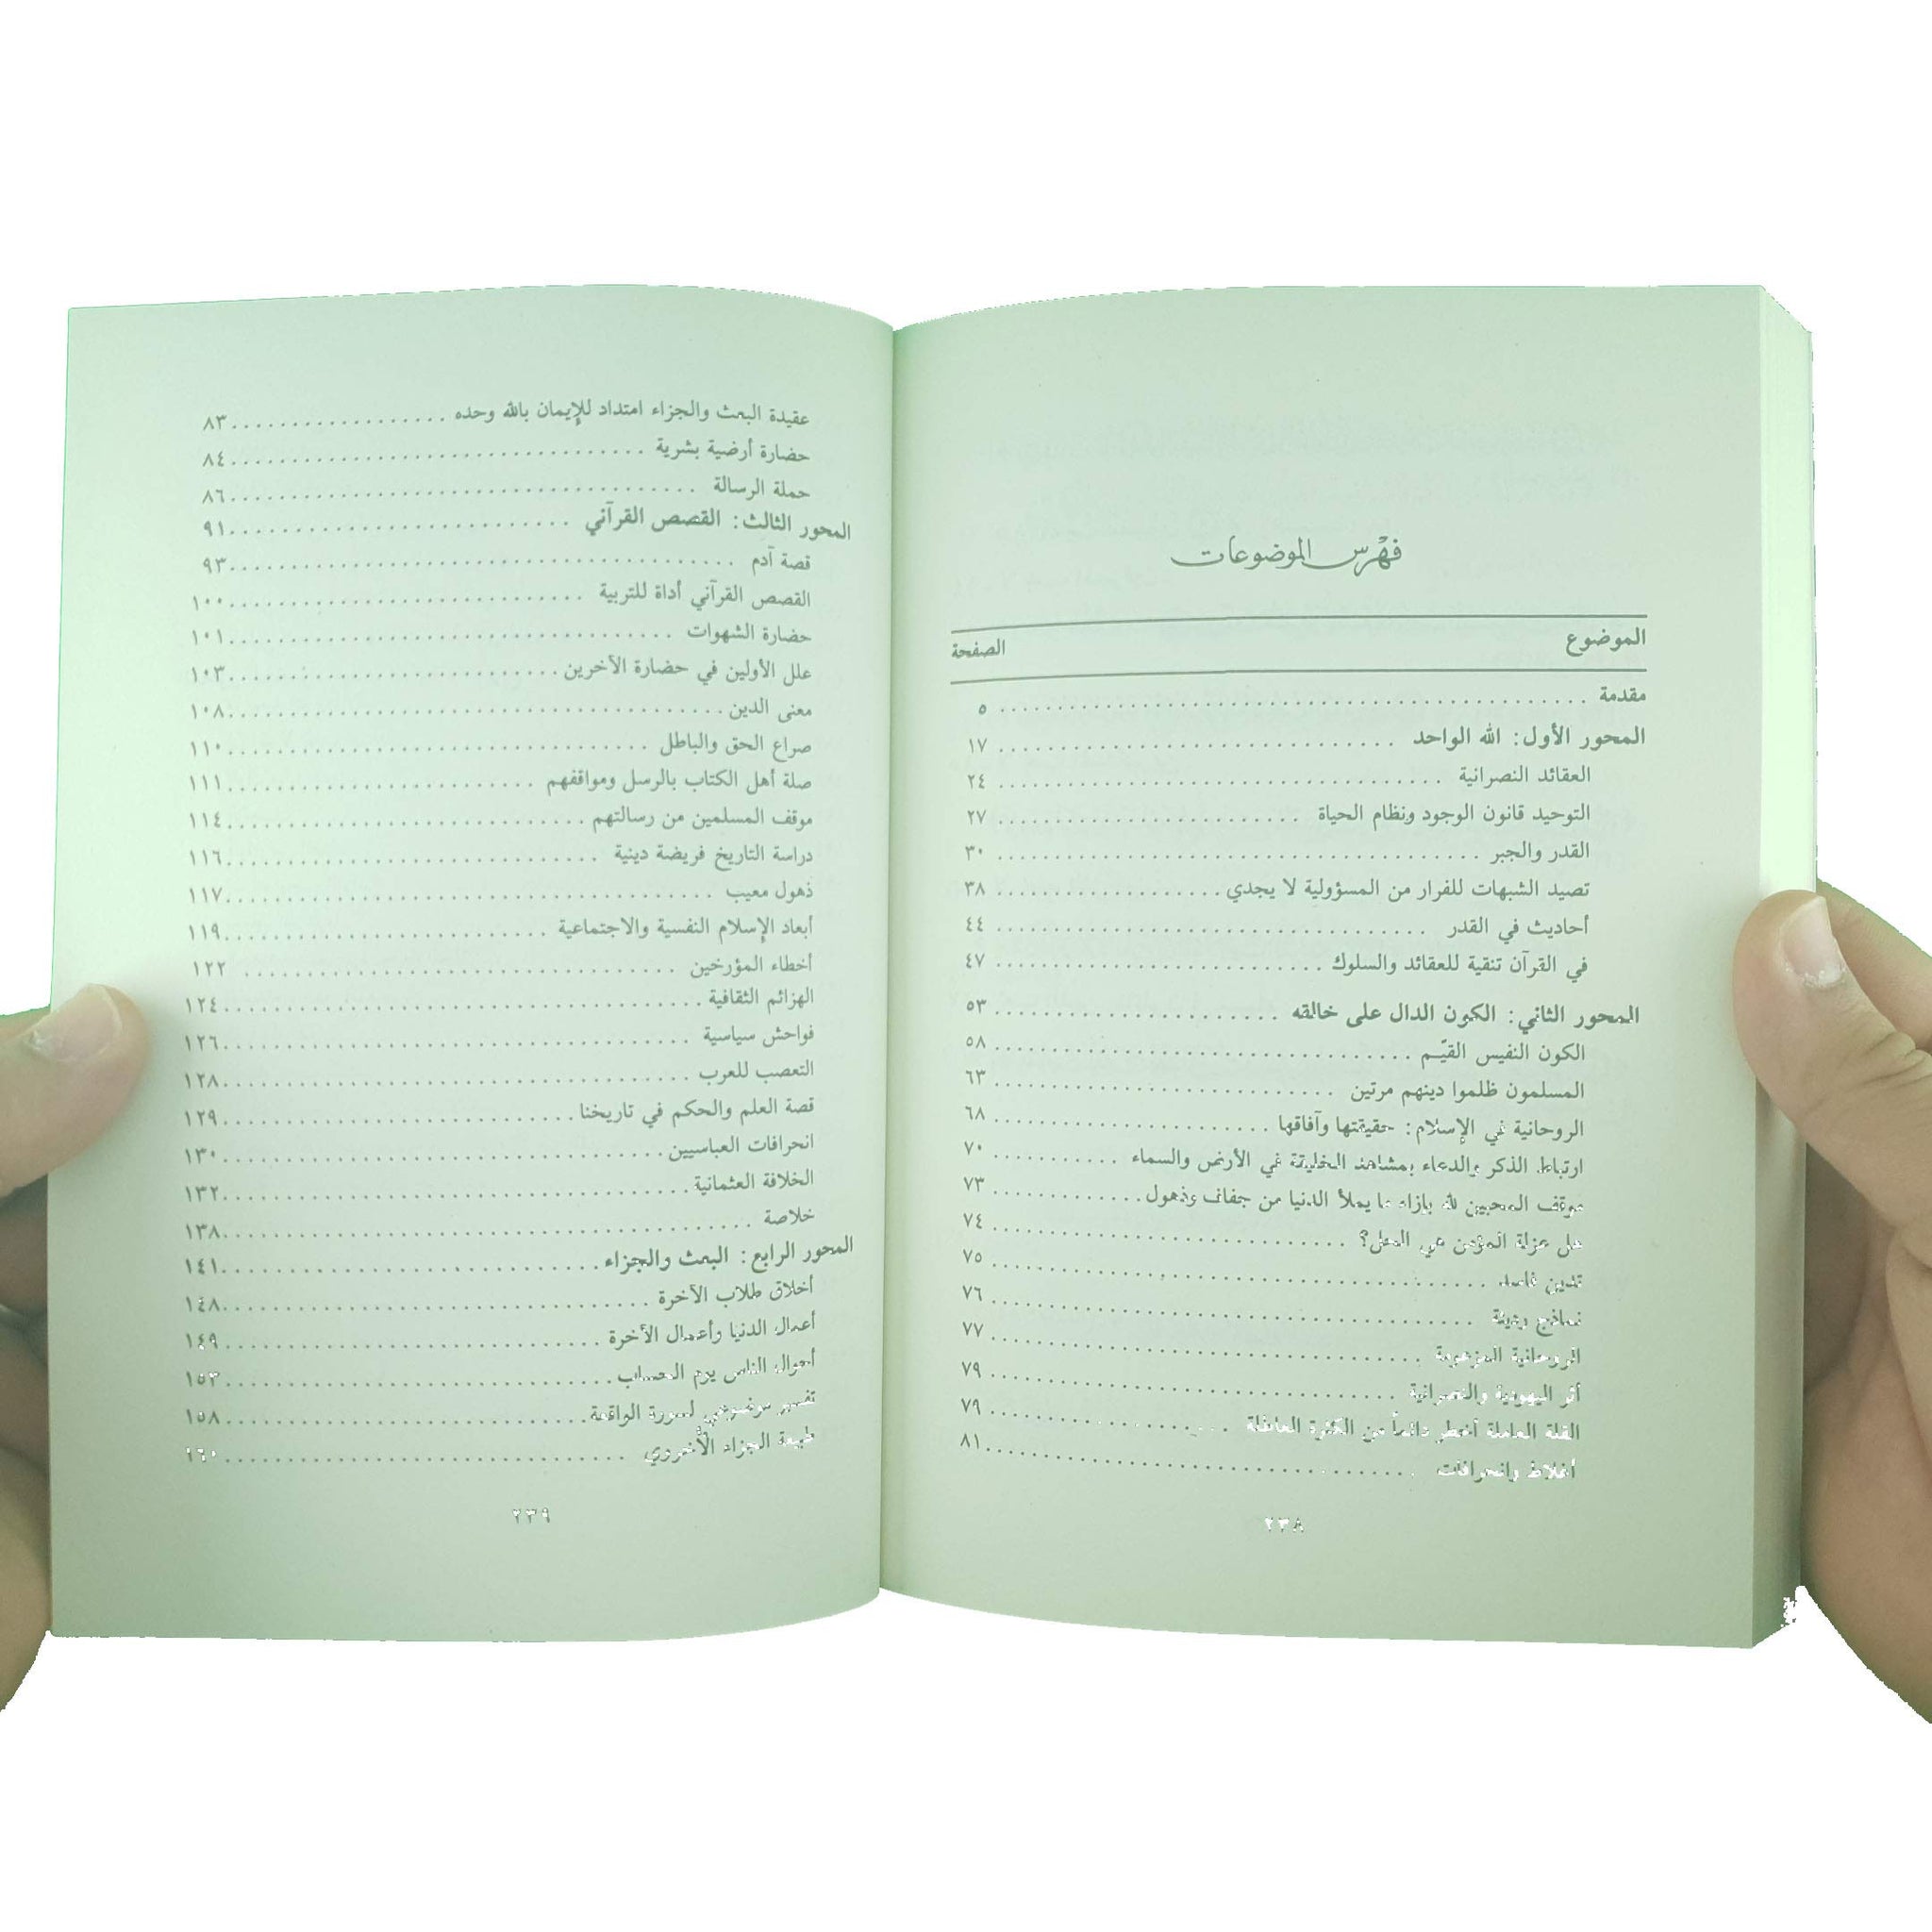 فهرس الموضوعات
الموضوع الصفحة
مقدمة ٥
المحور الأول: الله الواحد ١٧
العقائد النصرانية ٢٤
التوحيد قانون الوجود ونظام الحياة ٢٧
القدر والجبر ٣٠
تصيد الشبهات للفرار من المسؤولية لا يجدي ٣٨
أحاديث في القدر ٤٤
في القرآن تنقية للعقائد والسلوك ٤٧
المحور الثاني: الكون الدال على خالقه ٥٣
الكون النفيس القيّم ٥٨
المسلمون ظلموا دينهم مرتين ٦٣
الروحانية في الإسلام: حقيقتها وآفاقها ٦٨
ارتباط الذكر والدعاء بمشاهد الخليقة في الأرض والسماء ٧٠
موقف المحبين لله بإزاء ما يملأ الدنيا من جفاف وذهول ٧٣
هل عزلة المؤمن هي الحل؟ ٧٤
تدين فاسد ٧٥
نماذج رديئة ٧٦
الروحانية المزعومة ٧٧
أثر اليهودية والنصرانية ٧٩
القلة العاملة أخطر دائماً من الكثرة العاطلة ٧٩
أغلاط وانحرافات ٨١
٢٣٨
عقيدة البعث والجزاء امتداد للإيمان بالله وحده ٨٣
حضارة أرضية بشرية ٨٤
حملة الرسالة ٨٦
المحور الثالث: القصص القرآني ٩١
قصة آدم ٩٣
القصص القرآني أداة للتربية ١٠٠
حضارة الشهوات ١٠١
علل الأولين في حضارة الآخرين ١٠٣
معنى الدين ١٠٨
صراع الحق والباطل ١١٠
صلة أهل الكتاب بالرسل ومواقفهم ١١١
موقف المسلمين من رسالتهم ١١٤
دراسة التاريخ فريضة دينية ١١٦
ذهول معيب ١١٧
أبعاد الإسلام النفسية والاجتماعية ١١٩
أخطاء المؤرخين ١٢٢
الهزائم الثقافية ١٢٤
فواحش سياسية ١٢٦
التعصب للعرب ١٢٨
قصة العلم والحكم في تاريخنا ١٢٩
انحرافات العباسيين ١٣٠
الخلافة العثمانية ١٣٢
خلاصة ١٣٨
المحور الرابع: البعث والجزاء ١٤١
أخلاق طلاب الآخرة ١٤٨
أعمال الدنيا وأعمال الأخرة ١٤٩
أحوال الناس يوم الحساب ١٥٣
تفسير موضوعي لسورة الواقعة ١٥٨
طبيعة الجزاء الأخروي ١٦٠
٢٣٩